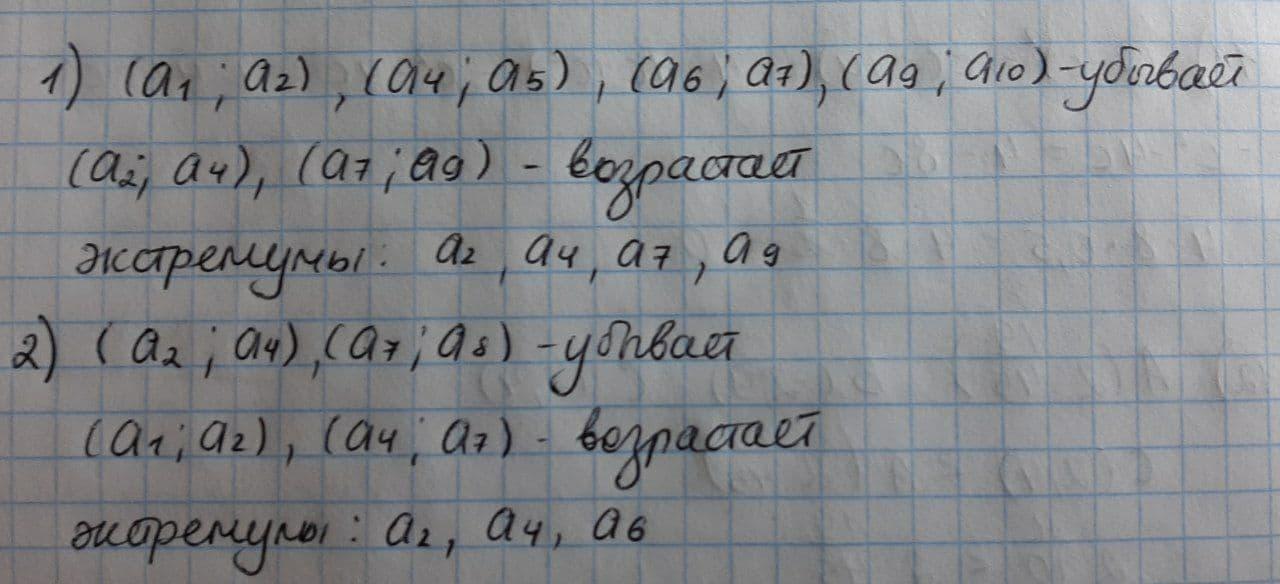 1) (a1 ; a2) , (a4 ; a5) , (a6 ; a7), (a9 ; a10) - убывает
(a2; a4), (a7 ; a9) - возрастает
экстремумы: a2 , a4 , a7 , a9
2) ( a2 ; a4) ,(a7 ; a8) - убывает
(a1 ; a2) , (a4 ; a7) - возрастает
экстремумы : a2 , a4 , a6